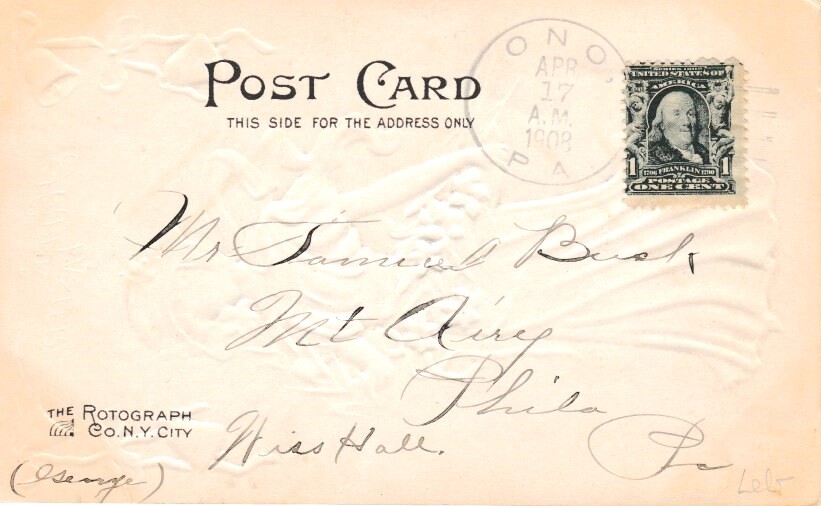 POST CARD
THIS SIDE FOR THE ADDRESS ONLY
ONO,
APR
17
A.M.
1908
PA
SERIES 1902
UNITED STATES OF
AMERICA
1 1
1706 FRANKLIN 1790
POSTAGE
ONE CENT
Mr Samuel Bush
Mt Airy
Phila
Pa
Wiss Hall.
THE ROTOGRAPH
CO. N.Y. CITY
(George)
Leb